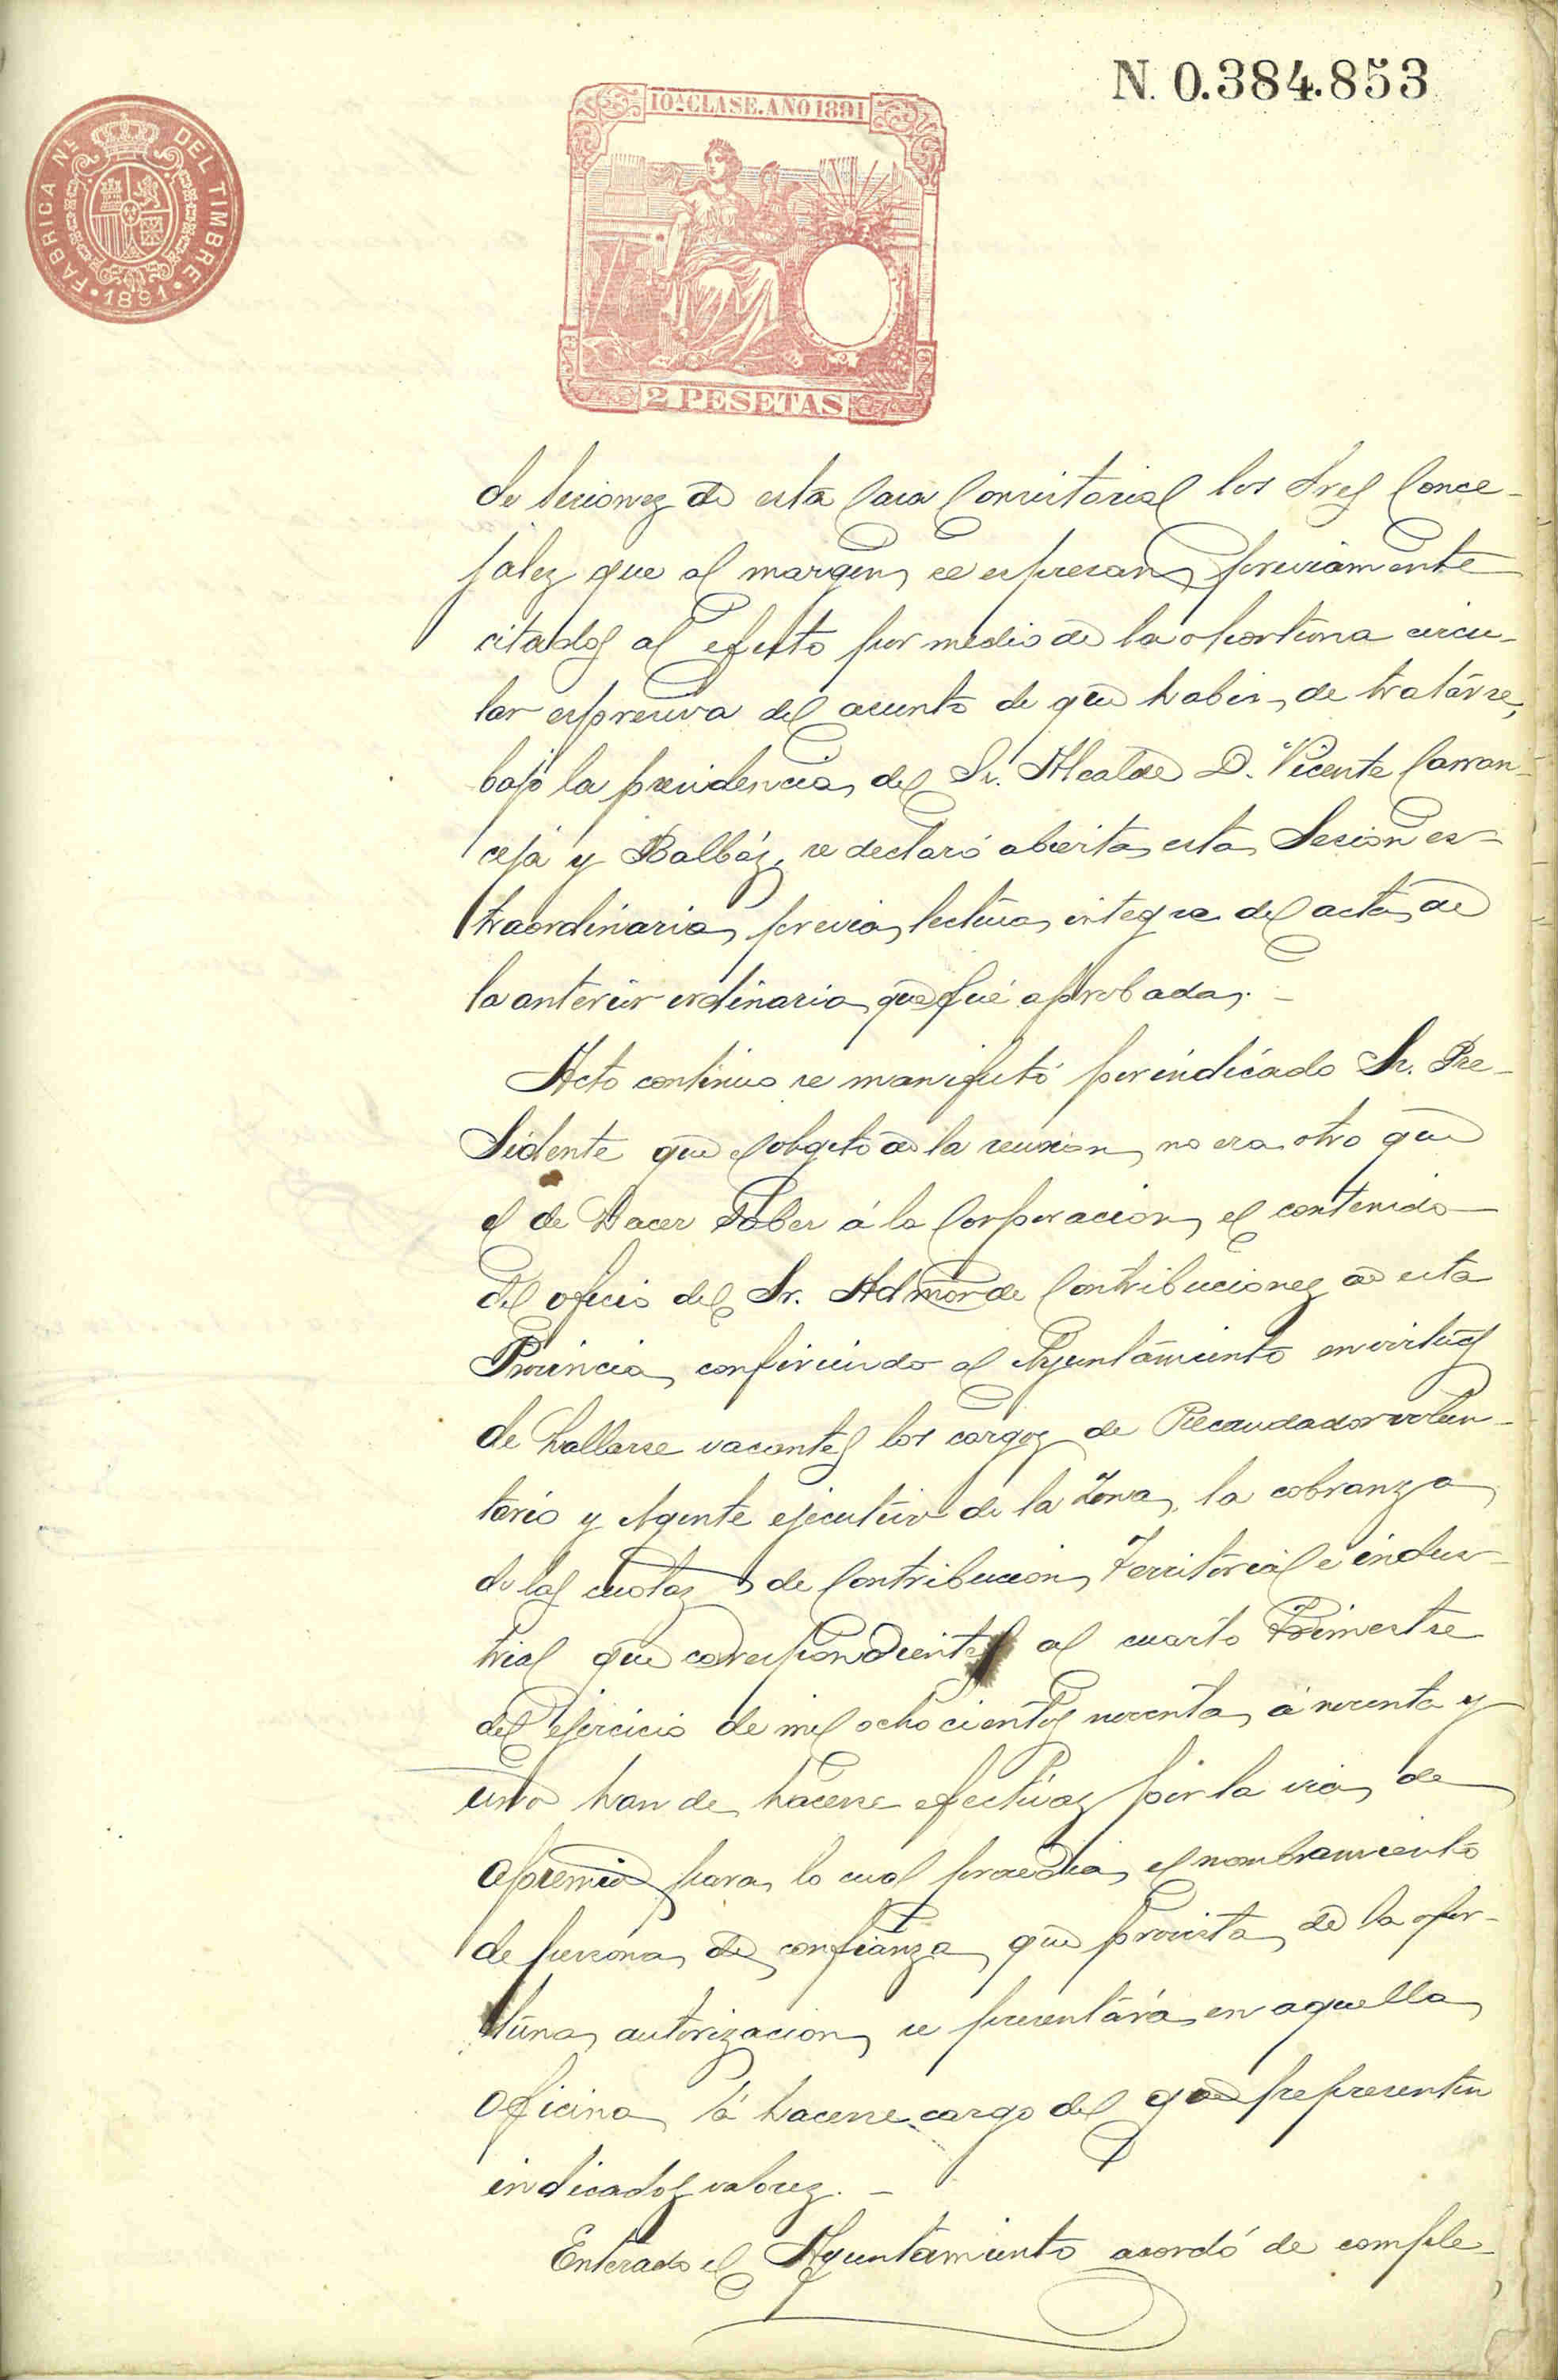 N. 0.384.853
FABRICA Nl. DEL TIMBRE
1891
10ª CLASE. AÑO 1891
2 PESETAS
de Sesiones de esta Casa Consistorial los Sres Conce-
jales que al margen se espresan previamente
citados al efecto por medio de la oportuna circu-
lar espresiva del asunto de que habia de tratarse,
bajo la presidencia del Sr. Alcalde D. Vicente Carran-
ceja y Balbás, se declaró abierta esta Sesion es-
traordinaria, previa lectura integra del acta de
la anterior ordinaria que fué aprobada. -
Acto continuo se manifestó por indicado Sr. Pre-
sidente que el obgeto de la reunion no era otro que
el de Hacer Saber á la Corporacion, el contenido
del oficio del Sr. Admor de Contribuciones de esta
Provincia, confiriendo al Ayuntamiento en virtud
de hallarse vacantes los cargos de Recaudador volun-
tario y Agente ejecutivo de la Zona, la cobranza
de las cuotas de Contribucion Territorial é indus-
trial que correspondientes al cuarto Trimestre
del ejercicio de mil ochocientos noventa á noventa y
uno han de hacerse efectivas por la via de
apremio para lo cual procedia el nombramiento
de persona de confianza que provista de la opor-
tuna autorizacion se presentára en aquella
Oficina á hacerse cargo del que representen
indicados valores. -
Enterado el Ayuntamiento acordó de comple-